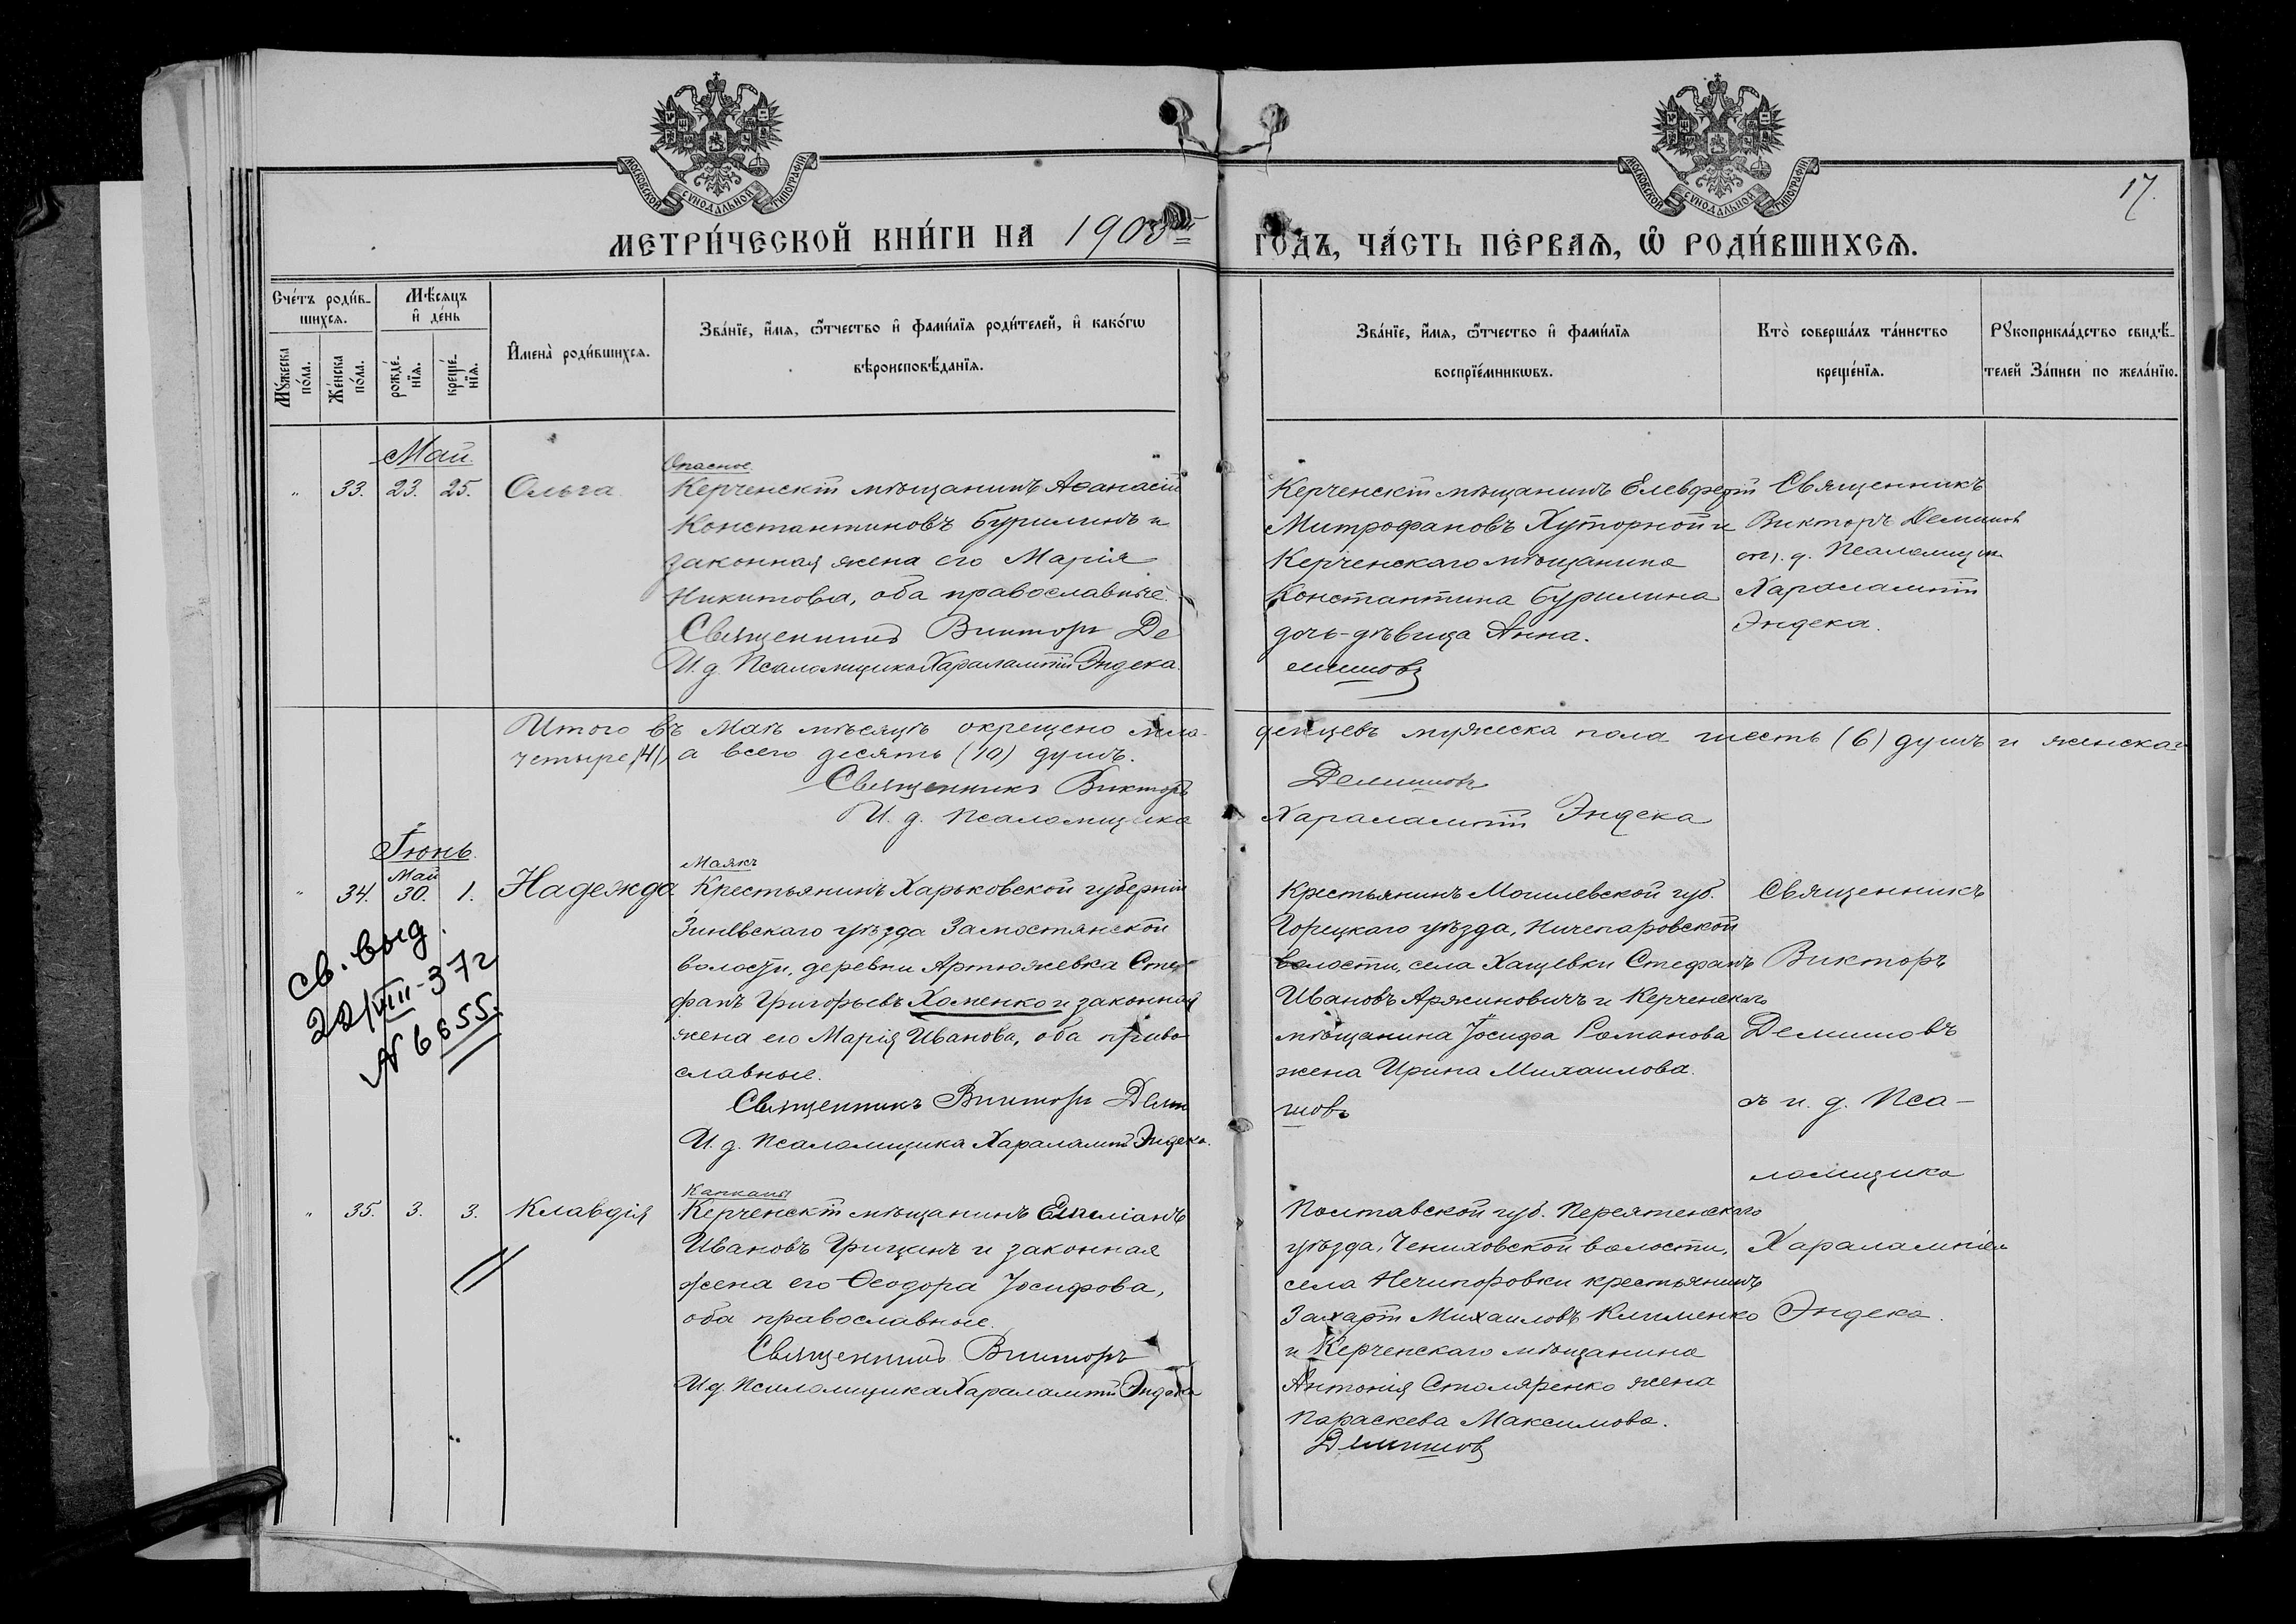 МОСКОВСКОЙ СУНОДАЛЬНОЙ ТИПОГРАФІИ
МОСКОВСКОЙ СУНОДАЛЬНОЙ ТИПОГРАФІИ
17.
МЕТРИ́ЧЕСКОЙ КНИ́ГИ НА 1903й ГОДЪ, ЧА́СТЬ ПЕ́РВАѦ, Ѡ҆ РОДИ́ВШИХСѦ.
Сче́тъ роди́в-
шихсѧ.
Мꙋ́жеска по́ла.
Же́нска по́ла.
Мѣ́сѧцъ и҆ де́нь
рожде́-
нїѧ.
креще́-
нїѧ.
И҆мена̀ роди́вшихсѧ.
Зва́нїе, и҆́мѧ, ѻ҆́тчество и҆ фами́лїѧ роди́телей, и҆ како́гѡ
вѣроисповѣ́данїѧ.
Зва́нїе, и҆́мѧ, ѻ҆́тчество и҆ фами́лїѧ
воспрїе́мникѡвъ.
Кто̀ соверша́лъ та́инство
креще́нїѧ.
Рꙋкоприкла́дство свидѣ́-
телей За́писи по жела́нїю.
Май.
" 33. 23. 25. Ольга
Опасное
Керченскій мѣщанинъ Аѳанасій
Константиновъ Бурилинъ и
законная жена его Марія
Никитова, оба православные.
Священникъ Викторъ Де
И. д. Псаломщика Харалампій Эндека.
Керченскій мѣщанинъ Елевферій
Митрофановъ Хуторной и
Керченскаго мѣщанина
Константина Бурилина
дочь-дѣвица Анна.
мишовъ
Священникъ
Викторъ Демишовъ
Харалампій
Эндека.
Итого въ Маѣ мѣсяцѣ окрещено мла-денцевъ мужеска пола шесть (6) душъ и женска
четыре (4), а всего десять (10) душъ.
Священникъ Викторъ Демишовъ
И. д. Псаломщика Харалампій Эндека
Іюнь.
Май
" 34. 30. 1. Надежда
св. выд.
22/VIII-37г
N 6655.
Маякъ
Крестьянинъ Харьковской губерніи
Зміевскаго уѣзда Замостянской
волости, деревни Артюховка Сте
фанъ Григорьевъ Хоменко и законная
жена его Марія Иванова, оба право
славные.
Священникъ Викторъ Деми
И. д. Псаломщика Харалампій Эндека.
Крестьянинъ Могилевской губ.
Горецкаго уѣзда,
волости, села Стефанъ
Ивановъ и Керченскаго
мѣщанина Іосифа Романова
жена Ирина Михаилова.
шовъ
Священникъ
Викторъ
Демишовъ
съ и. д. Пса-
ломщика
Харалампіем
Эндека.
" 35. 3. 3. Клавдія
Капканы
Керченскій мѣщанинъ Емиліанъ
Ивановъ Грищанъ и законная
жена его Ѳеодора Іосифова,
оба православные.
Священникъ Викторъ
И.д. Псаломщика Харалампій Эндека
Полтавской губ. Переятенскаго
уѣзда, волости,
села Нечипоровки крестьянинъ
Захарій Михаиловъ Клименко
и Керченскаго мѣщанина
Антонія Столяренко жена
Параскева Максимова.
Демишовъ